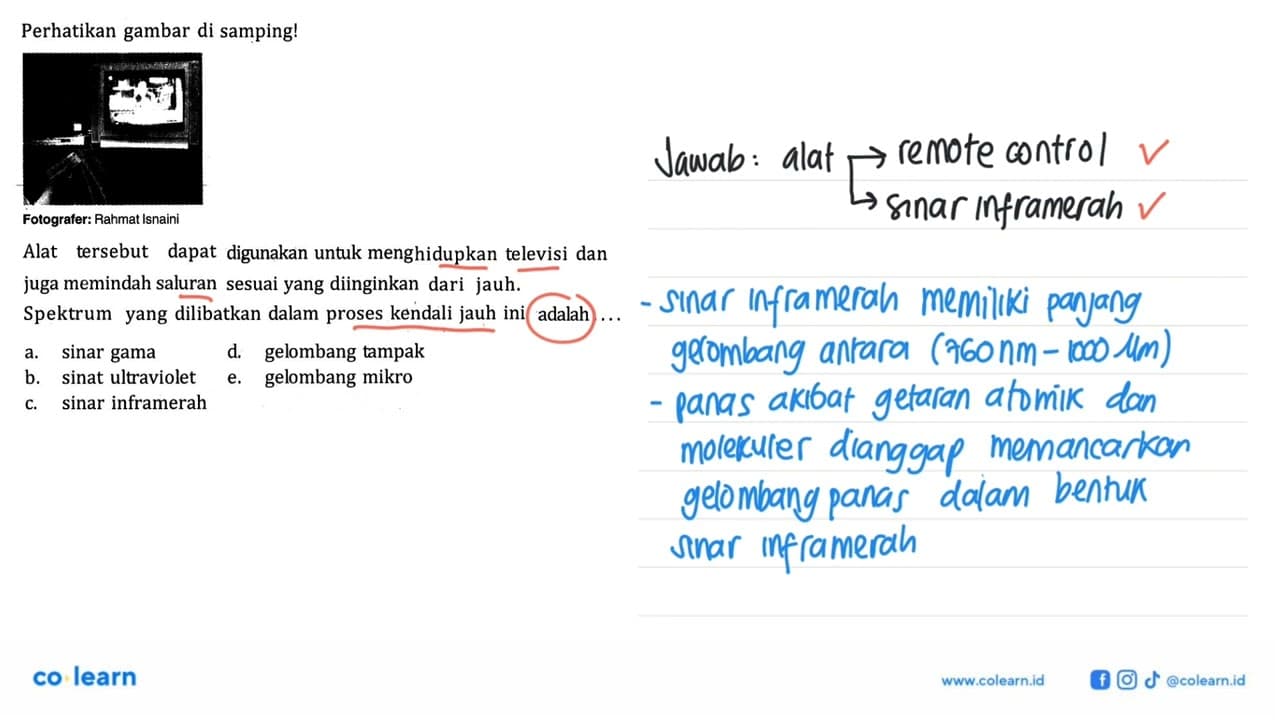 Perhatikan gambar di samping!
Fotografer: Rahmat Isnaini
Alat tersebut dapat digunakan untuk menghidupkan televisi dan
juga memindah saluran sesuai yang diinginkan dari jauh.
Spektrum yang dilibatkan dalam proses kendali jauh ini adalah ...
a. sinar gama
b. sinat ultraviolet
c. sinar inframerah
d. gelombang tampak
e. gelombang mikro
Jawab: alat → remote control ✓
↳ sinar inframerah ✓
- sinar inframerah memiliki panjang
gelombang antara (760 nm - 1000 μm)
- panas akibat getaran atomik dan
molekuler dianggap memancarkan
gelombang panas dalam bentuk
sinar inframerah
co learn
www.colearn.id
@colearn.id